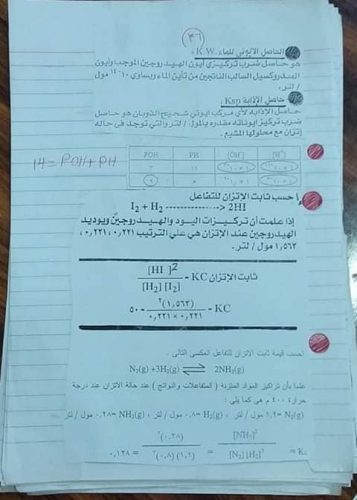 (٣٦)
الحاصل الأيوني للماء K.W. :
هو حاصل ضرب تركيزي أيون الهيدروجين الموجب وأيون
الهيدروكسيل السالب الناتجين من تأين الماء ويساوي ١٠-١٤ مول
/ لتر.
حاصل الإذابة Ksp :
حاصل الإذابة لأي مركب أيوني شحيح الذوبان هو حاصل
ضرب تركيز أيوناته مقدرة بالمول / لتر والتي توجد في حالة
إتزان مع محلولها المشبع.
14 = POH + PH
POH PH [OH-] [H+]
١١
أحسب ثابت الإتزان للتفاعل
I2 + H2 ------------------> 2HI
إذا علمت أن تركيزات اليود والهيدروجين ويوديد
الهيدروجين عند الإتزان هي علي الترتيب ٠,٢٢١ ، ٠,٢٢١ ،
١,٥٦٣ مول / لتر.
ثابت الإتزان KC = [HI]2 / [H2] [I2]
KC = (١,٥٦٣)٢ / ٠,٢٢١ × ٠,٢٢١ = ٥٠
احسب قيمة ثابت الإتزان للتفاعل العكسي التالي
N2(g) + 3H2(g) ⇌ 2NH3(g)
علما بأن تراكيز المواد المتزنة (المتفاعلات والنواتج) عند حالة الاتزان عند درجة
حرارة ٤٠٠ م هي كما يلي :
N2(g) = ١,٢ مول / لتر ، H2(g) = ٠,٨ مول / لتر ، NH3(g) = ٠,٢٨ مول / لتر
Kc = [NH3]2 / [N2] [H2]3 = (٠,٢٨)٢ / (٠,٨)٣ (١,٢) = ٠,١٢٨